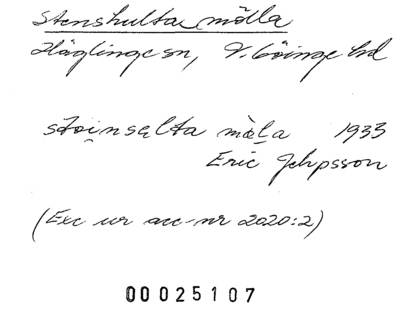 Stenshulta mölla
Häglinge sn, V. Göinge hd
stoinsəlta mø̀la 1933
Eric Jeppsson
(Exc ur acc-nr 2020:2)
00025107